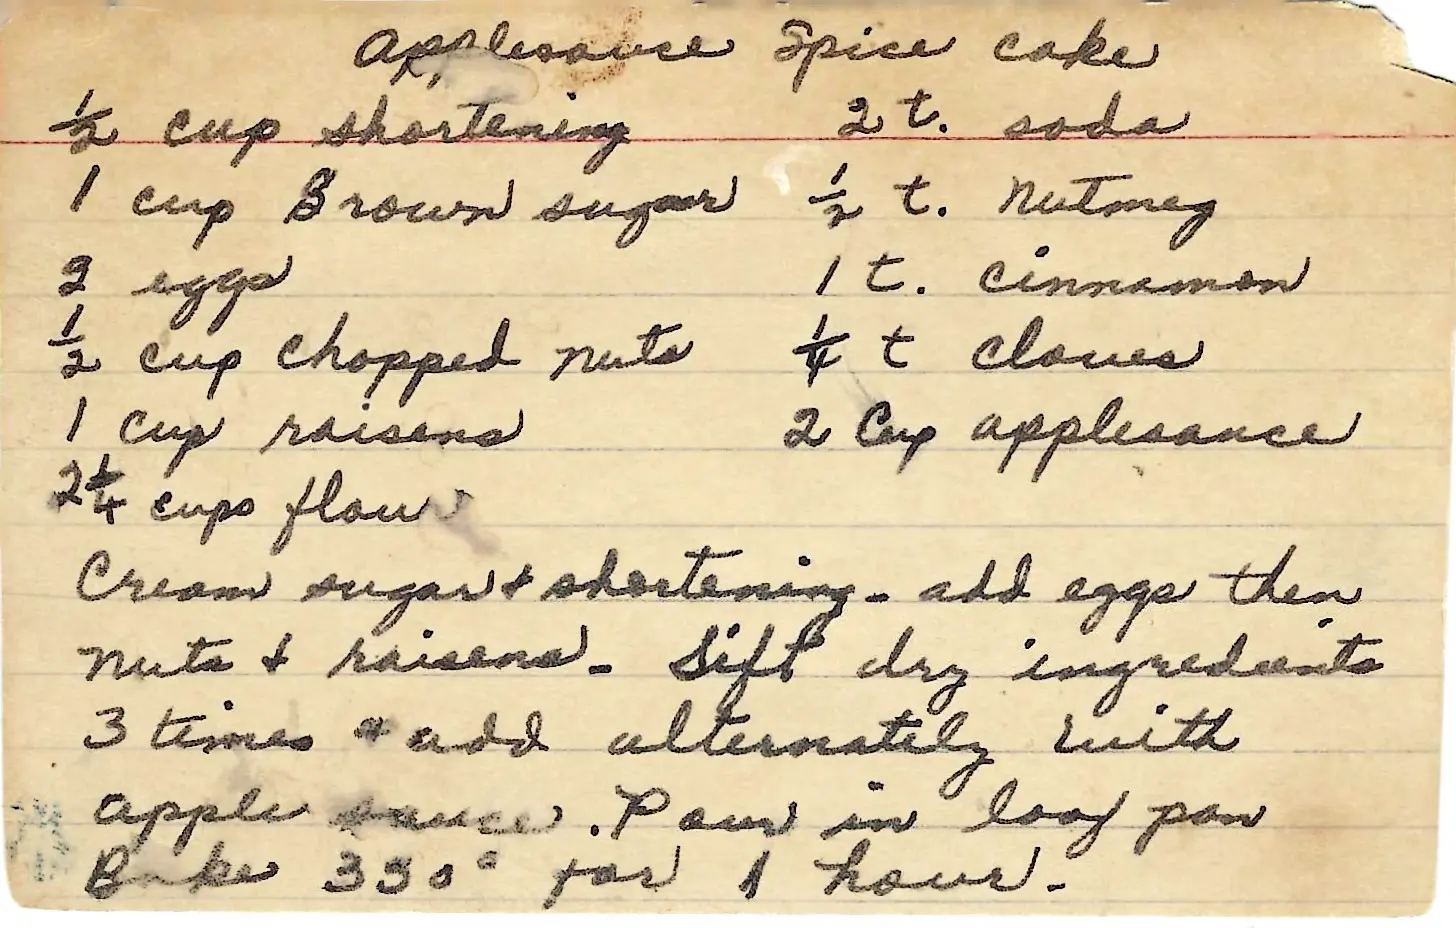 Applesauce Spice cake
½ cup shortening 2 t. soda
1 cup Brown sugar ½ t. Nutmeg
2 eggs 1 t. cinnamon
½ cup chopped nuts ¼ t cloves
1 cup raisens 2 Cup applesauce
2¼ cups flour
Cream sugar & shortening - add eggs then
nuts & raisens - Sift dry ingredients
3 times & add alternately with
apple sauce. Pour in loaf pan
Bake 350° for 1 hour.